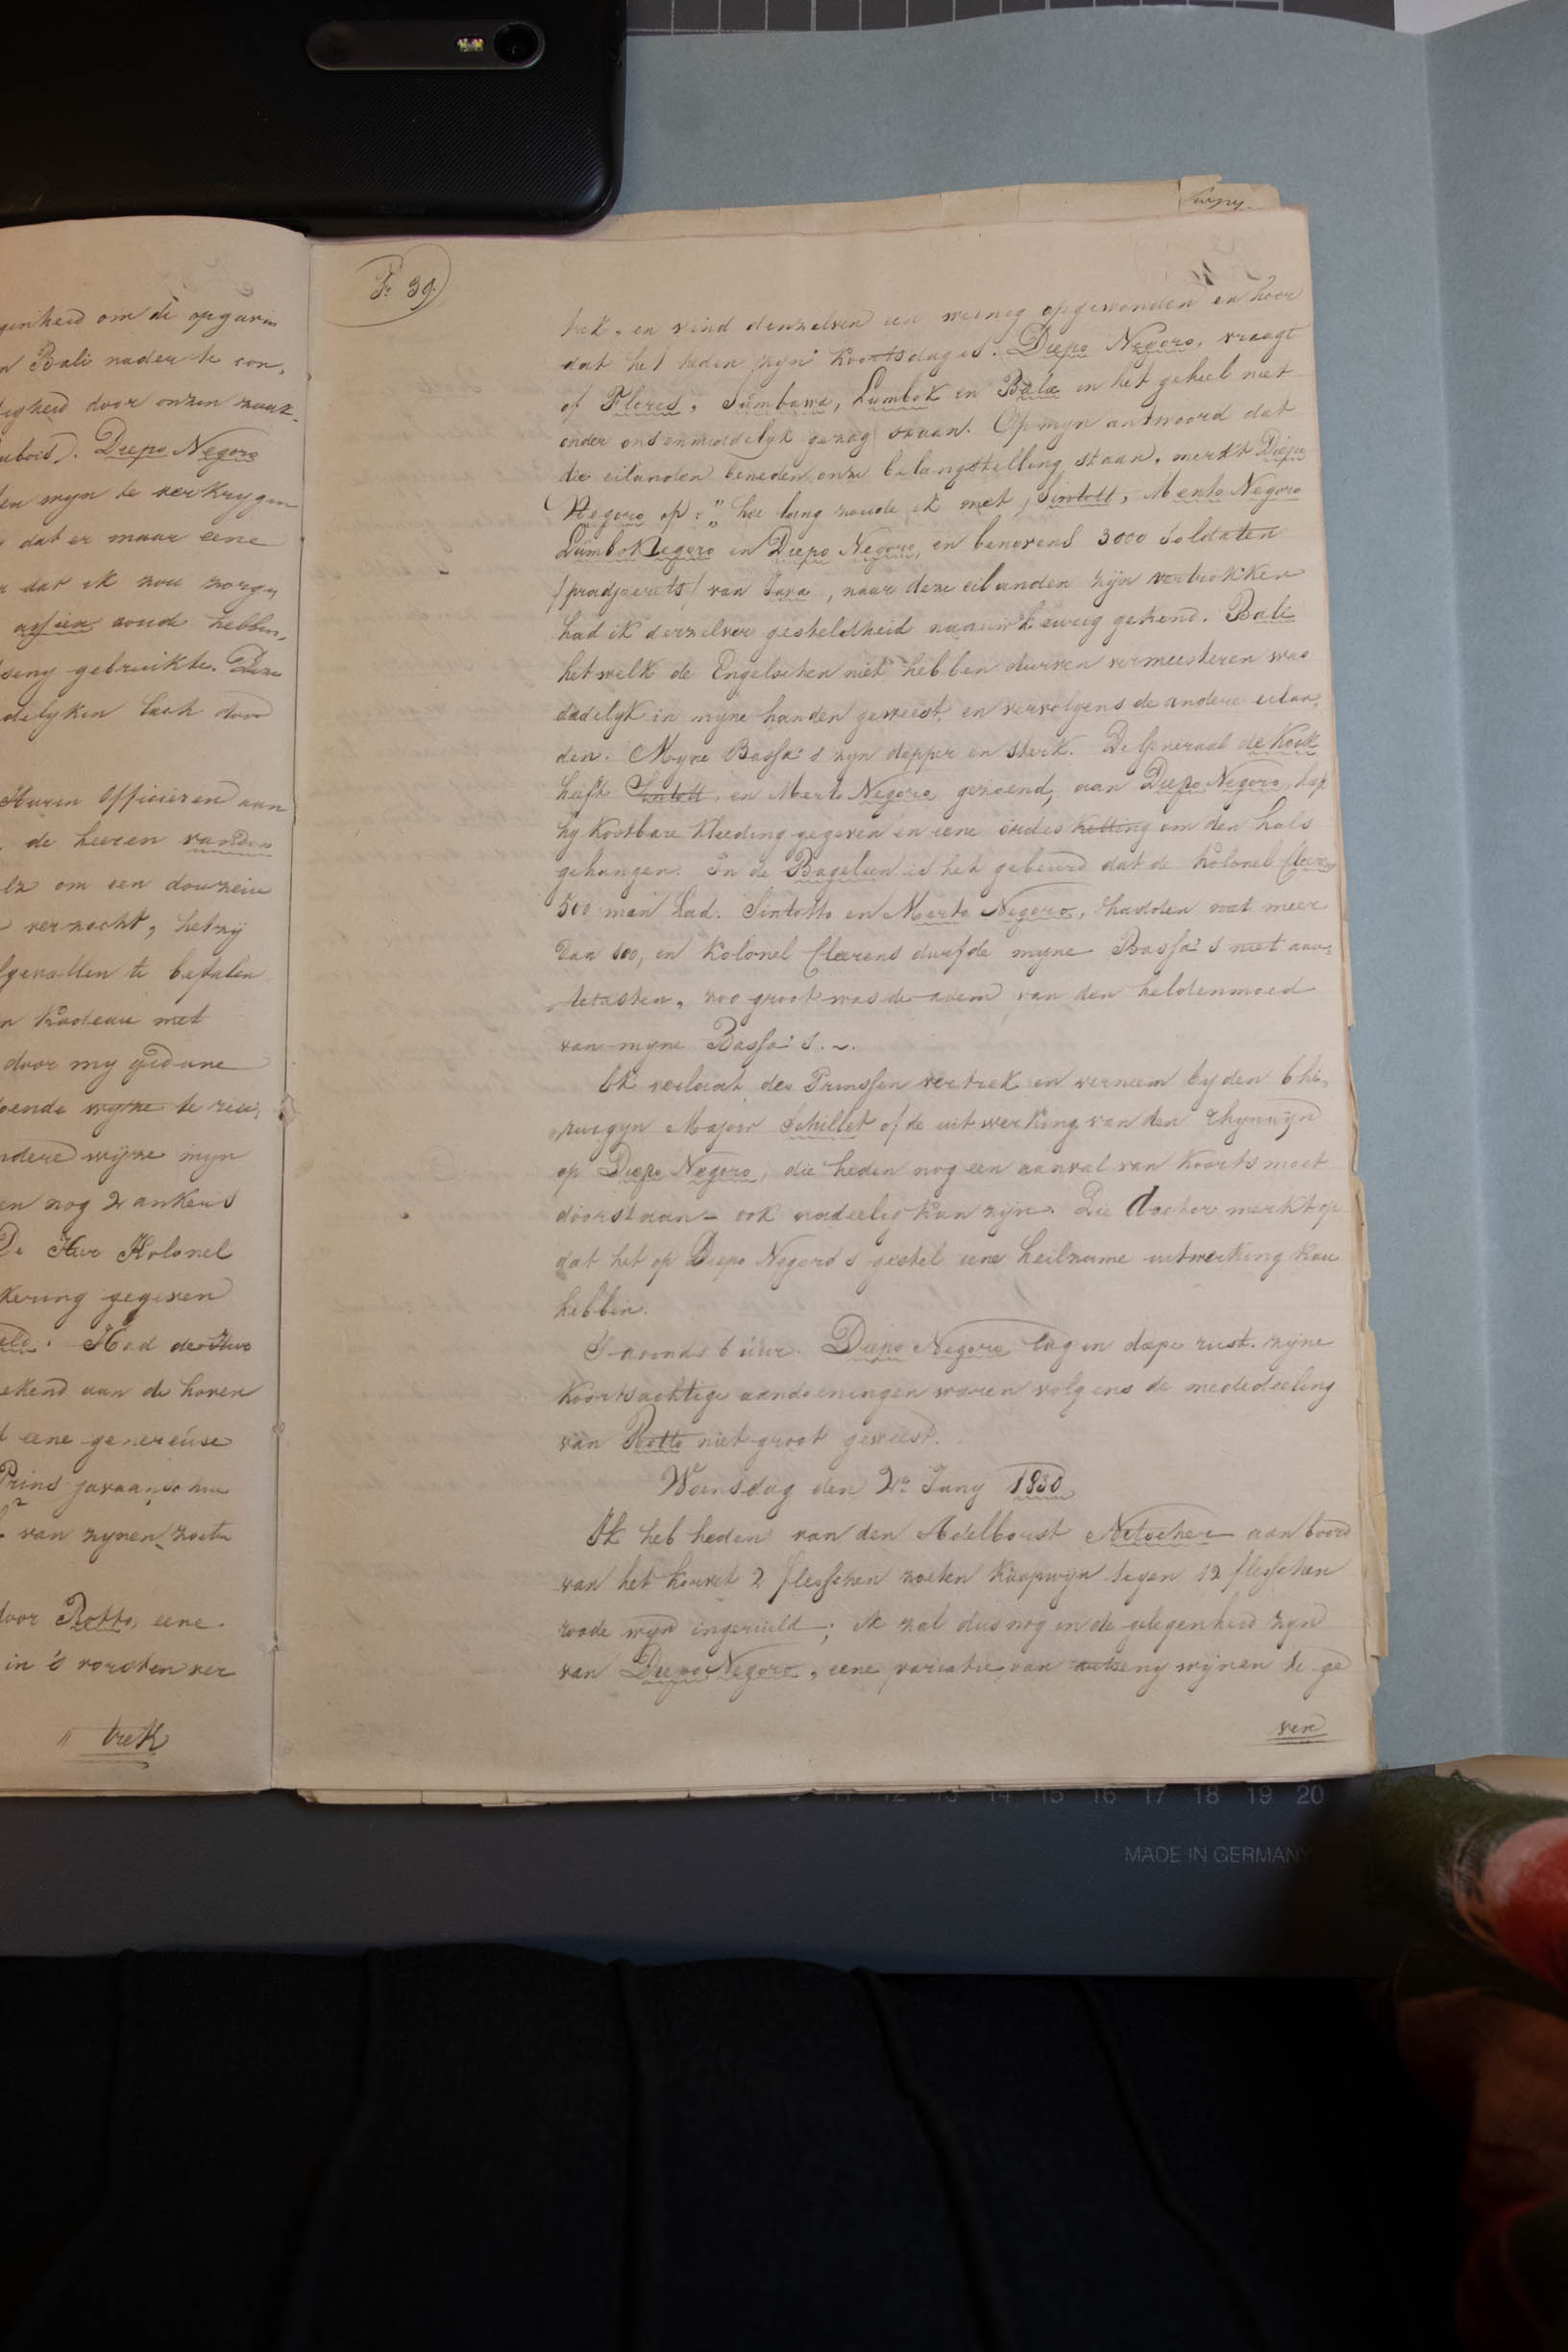 genheid om de opgaven
n Bali nader te con„
igheid door onzen zaak„
ubois). Diepo Negoro
en myn te verkrygen
dat er maar eene
dat ik zou zorgen
zoude hebben,
seny gebruikte. Deze
delyken lach door
Heeren Officieren aan
de heeren van den
om een douzein
verzocht, hetzy
gevallen te bepalen
n Kadeau met
door my gedane
oende wyze te rui„
ndere wijze myn
en nog 2 ankers
De Heer Kolonel
kering gegeven
Had de Heer
ekend aan de hoven
eene genereuse
Prins javaansche
van zynen zoeten
door Rotto, eene
in 's vorsten ver
„ trek
F. 39.
trek. en vind denzelven een weinig opgewonden en hoor
dat het heden zyn koortsdag is. Diepo Negoro, vraagt
of Flores, Sumbawa, Lumbok en Balie in het geheel niet
onder ons onmiddelyk gezag staan. Op myn antwoord dat
die eilanden beneden onze belangstelling staan, merkt Diepo
Negoro op: „ hoe lang zoude ik met Sintott, Merto Negoro
Lumbok Negoro en Diepo Negoro, en benevens 3000 Soldaten
/pradjoerits/ van Java, naar deze eilanden zijn vertrokken
had ik derzelver gesteldheid naauwkeurig gekend. Balie
hetwelk de Engelschen niet hebben durven vermeesteren was
dadelyk in myne handen geweest en vervolgens de andere eilan„
den. Myne Bassa's zyn dapper en sterk. De Generaal de Kock
heeft Sintott, en Merto Negoro gezoend, aan Diepo Negoro
hy kostbare kleeding gegeven en eene ketting om den hals
gehangen. In de Bagelen is het gebeurd dat de Kolonel Cleerens
500 man had. Sintotto en Merto Negoro, hadden niet meer
dan 100, en Kolonel Cleerens durfde myne Bassa's niet aan„
tetasten, zoo groot was de adem van den heldenmoed
van myne Bassa's. ~.
Ik verlaat des Prinssen vertrek en verneem by den Chi„
rurgyn Majoor Schillet of de uitwerking van den Rhynwyn
op Diepo Negoro, die heden nog een aanval van koorts moet
doorstaan – ook nadeelig kan zyn. Die doctor merkt op
dat het op Diepo Negoro's gestel eene heilzame uitwerking kan
hebben.
S avonds 6 uur. Diepo Negoro lag in diepe rust. zyne
koortsachtige aandoeningen waren volgens de mededeeling
van Rotto niet groot geweest.
Woensdag den 2e Juny 1830
Ik heb heden van den Adelborst Netscher aan boord
van het korvet 2 flesschen zoeten Kaapwyn tegen 12 flesschen
roode wyn ingeruild; ik zal dus nog in de gelegenheid zyn
van Diepo Negoro, eene variatie van wijnen te ge
ven